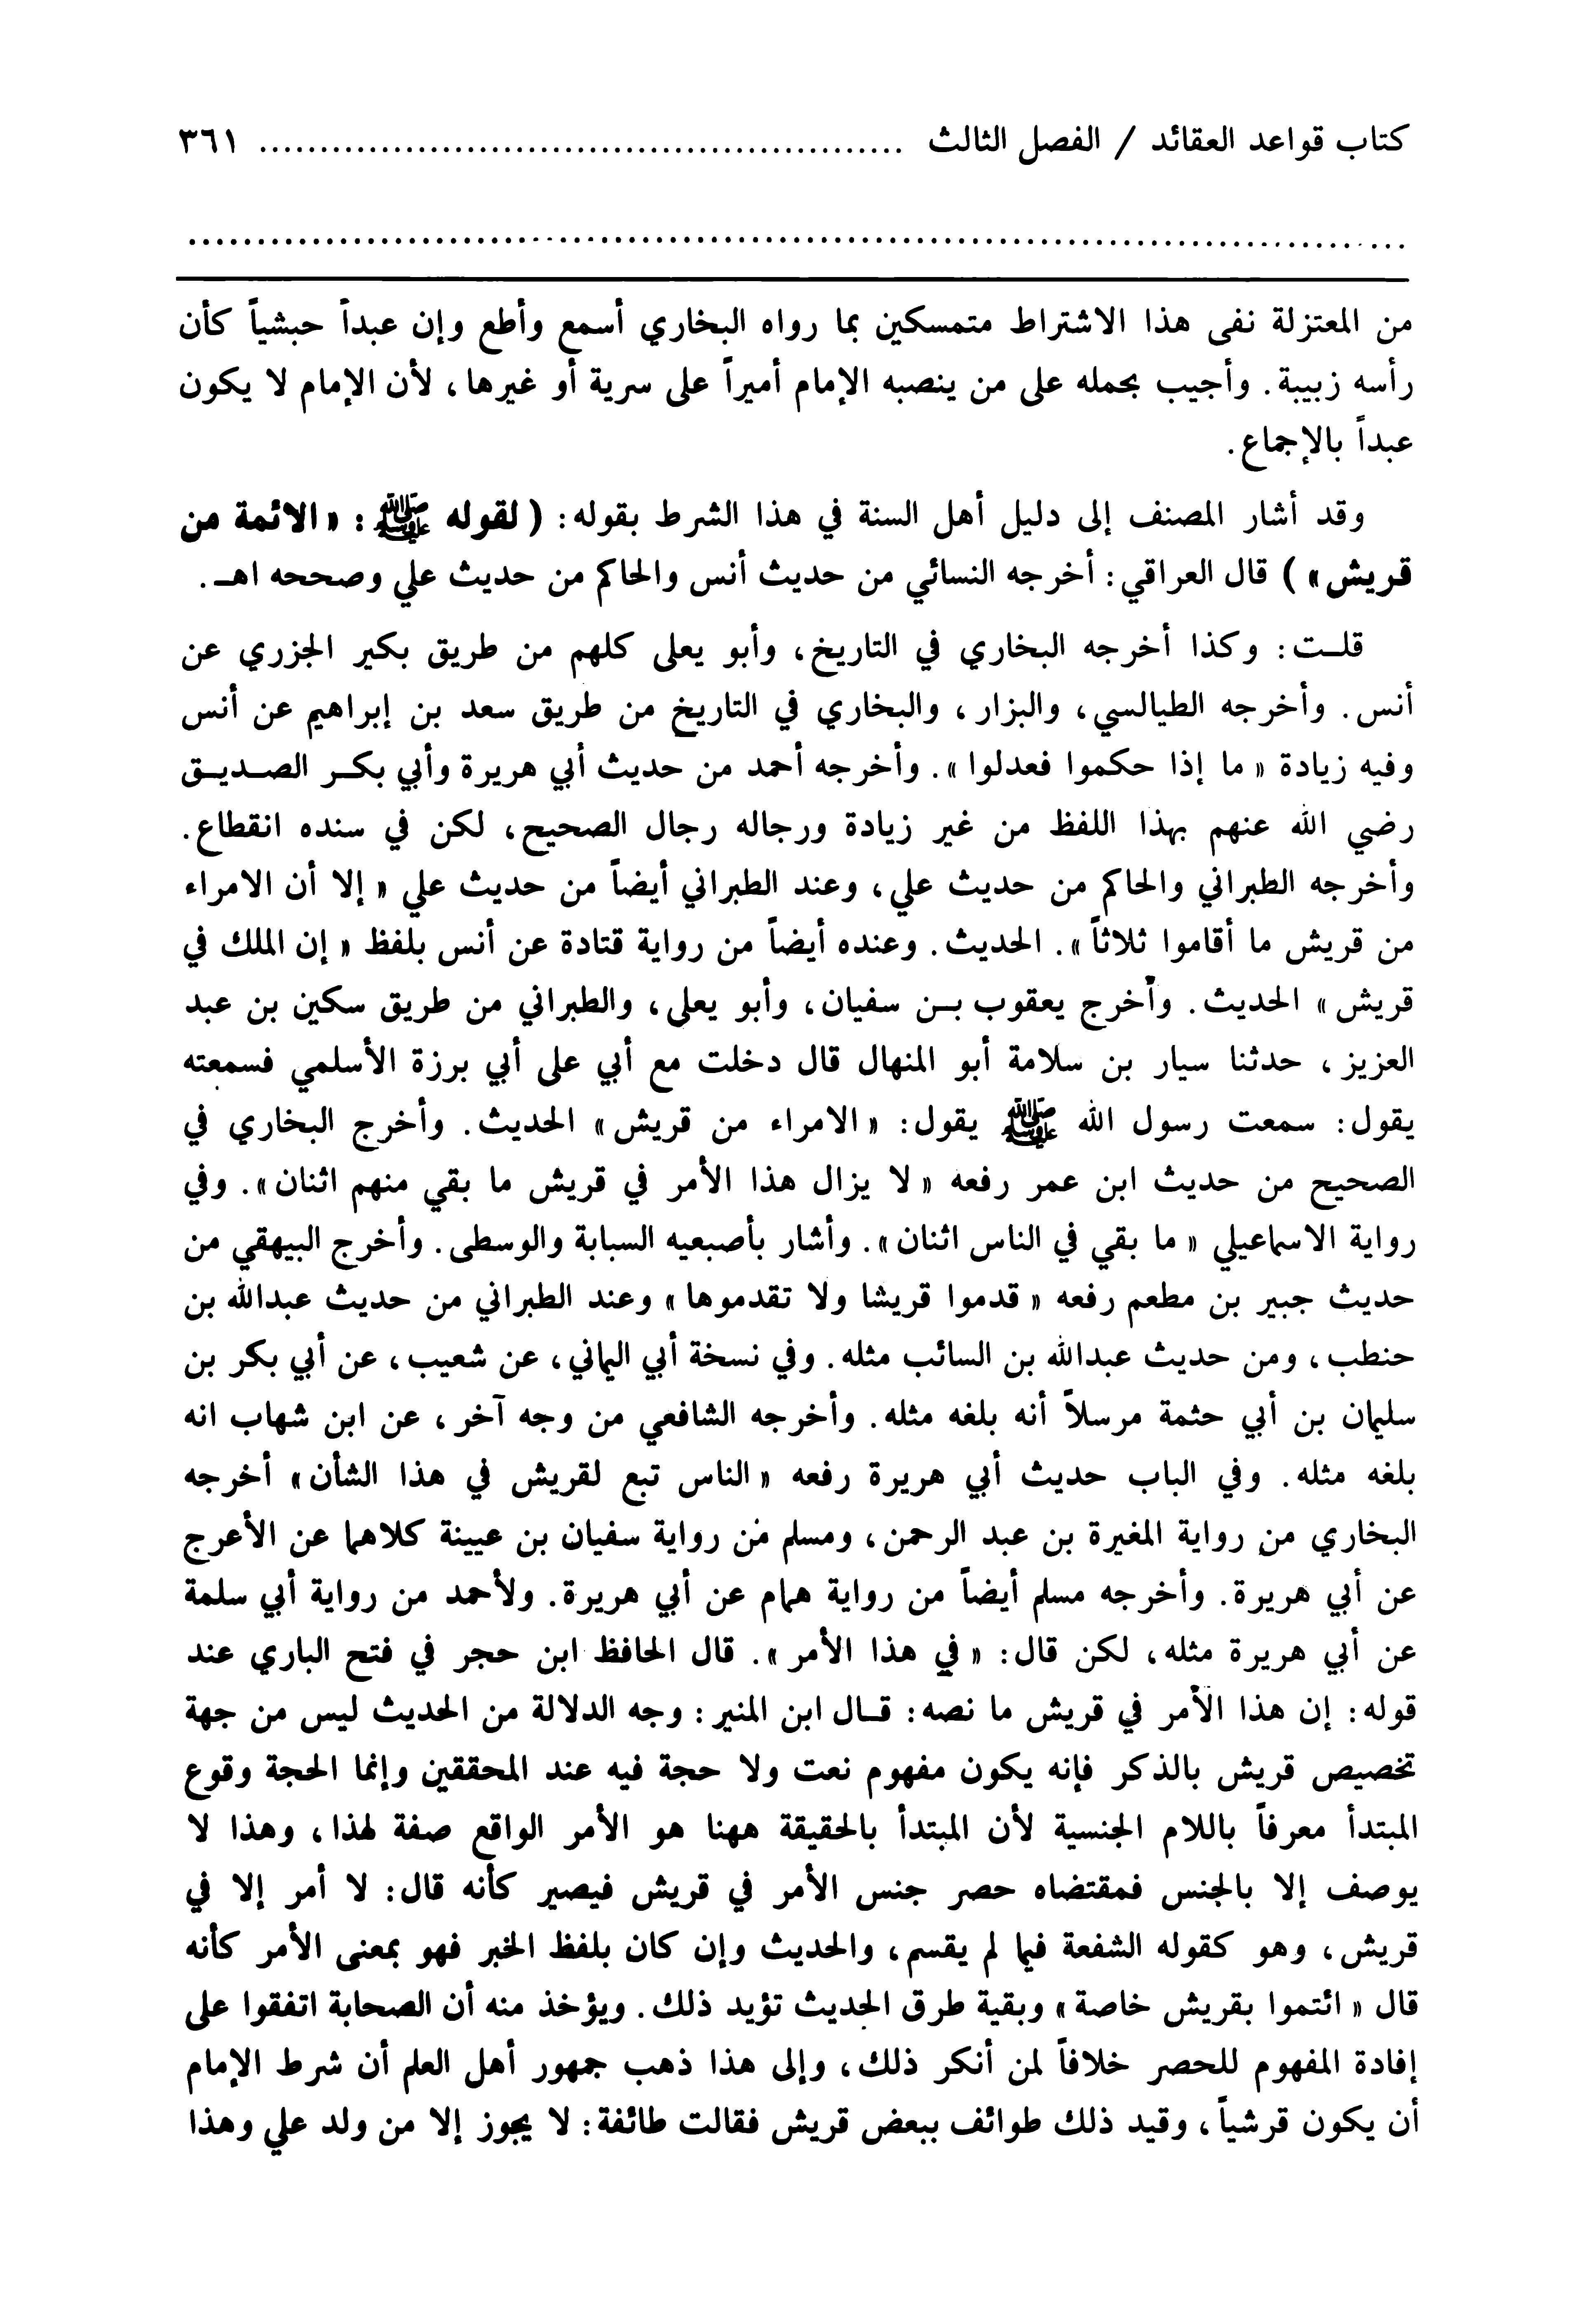 كتاب قواعد العقائد / الفصل الثالث ..................................................... ٣٦١
..........................................................................................
من المعتزلة نفى هذا الاشتراط متمسكين بما رواه البخاري أسمع وأطع وإن عبداً حبشياً كأن
رأسه زبيبة. وأجيب بحمله على من ينصبه الإمام أميراً على سرية أو غيرها، لأن الإمام لا يكون
عبداً بالإجماع.
وقد أشار المصنف إلى دليل أهل السنة في هذا الشرط بقوله: (لقوله ﷺ: «الائمة من
قريش») قال العراقي: أخرجه النسائي من حديث أنس والحاكم من حديث علي وصححه اهـ.
قلـت: وكذا أخرجه البخاري في التاريخ، وأبو يعلى كلهم من طريق بكير الجزري عن
أنس. وأخرجه الطيالسي، والبزار، والبخاري في التاريخ من طريق سعد بن إبراهيم عن أنس
وفيه زيادة «ما إذا حكموا فعدلوا». وأخرجه أحمد من حديث أبي هريرة وأبي بكـر الصـديـق
رضي الله عنهم بهذا اللفظ من غير زيادة ورجاله رجال الصحيح، لكن في سنده انقطاع.
وأخرجه الطبراني والحاكم من حديث علي، وعند الطبراني أيضاً من حديث علي «إلا أن الامراء
من قريش ما أقاموا ثلاثاً». الحديث. وعنده أيضاً من رواية قتادة عن أنس بلفظ «إن الملك في
قريش» الحديث. وأخرج يعقوب بـن سفيان، وأبو يعلى، والطبراني من طريق سكين بن عبد
العزيز، حدثنا سيار بن سلامة أبو المنهال قال دخلت مع أبي على أبي برزة الأسلمي فسمعته
يقول: سمعت رسول الله ﷺ يقول: «الامراء من قريش» الحديث. وأخرج البخاري في
الصحيح من حديث ابن عمر رفعه «لا يزال هذا الأمر في قريش ما بقي منهم اثنان». وفي
رواية الاسماعيلي «ما بقي في الناس اثنان». وأشار بأصبعيه السبابة والوسطى. وأخرج البيهقي من
حديث جبير بن مطعم رفعه «قدموا قريشا ولا تقدموها» وعند الطبراني من حديث عبدالله بن
حنطب، ومن حديث عبدالله بن السائب مثله. وفي نسخة أبي اليماني، عن شعيب، عن أبي بكر بن
سليمان بن أبي حثمة مرسلاً أنه بلغه مثله. وأخرجه الشافعي من وجه آخر، عن ابن شهاب انه
بلغه مثله. وفي الباب حديث أبي هريرة رفعه «الناس تبع لقريش في هذا الشأن» أخرجه
البخاري من رواية المغيرة بن عبد الرحمن، ومسلم من رواية سفيان بن عيينة كلاهما عن الأعرج
عن أبي هريرة. وأخرجه مسلم أيضاً من رواية همام عن أبي هريرة. ولأحمد من رواية أبي سلمة
عن أبي هريرة مثله، لكن قال: «في هذا الأمر». قال الحافظ ابن حجر في فتح الباري عند
قوله: إن هذا الأمر في قريش ما نصه: قـال ابن المنير: وجه الدلالة من الحديث ليس من جهة
تخصيص قريش بالذكر فإنه يكون مفهوم نعت ولا حجة فيه عند المحققين وإنما الحجة وقوع
المبتدأ معرفاً باللام الجنسية لأن المبتدأ بالحقيقة ههنا هو الأمر الواقع صفة لهذا، وهذا لا
يوصف إلا بالجنس فمقتضاه حصر جنس الأمر في قريش فيصير كأنه قال: لا أمر إلا في
قريش، وهو كقوله الشفعة فيما لم يقسم، والحديث وإن كان بلفظ الخبر فهو بمعنى الأمر كأنه
قال «ائتموا بقريش خاصة» وبقية طرق الحديث تؤيد ذلك. ويؤخذ منه أن الصحابة اتفقوا على
إفادة المفهوم للحصر خلافاً لمن أنكر ذلك، وإلى هذا ذهب جمهور أهل العلم أن شرط الإمام
أن يكون قرشياً، وقيد ذلك طوائف ببعض قريش فقالت طائفة: لا يجوز إلا من ولد علي وهذا